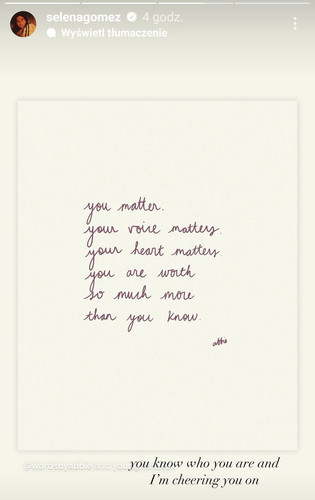 selenagomez 4 godz.
Wyświetl tłumaczenie
you matter.
your voice matters.
your heart matters
you are worth
so much more
than you know.
you know who you are and
I'm cheering you on